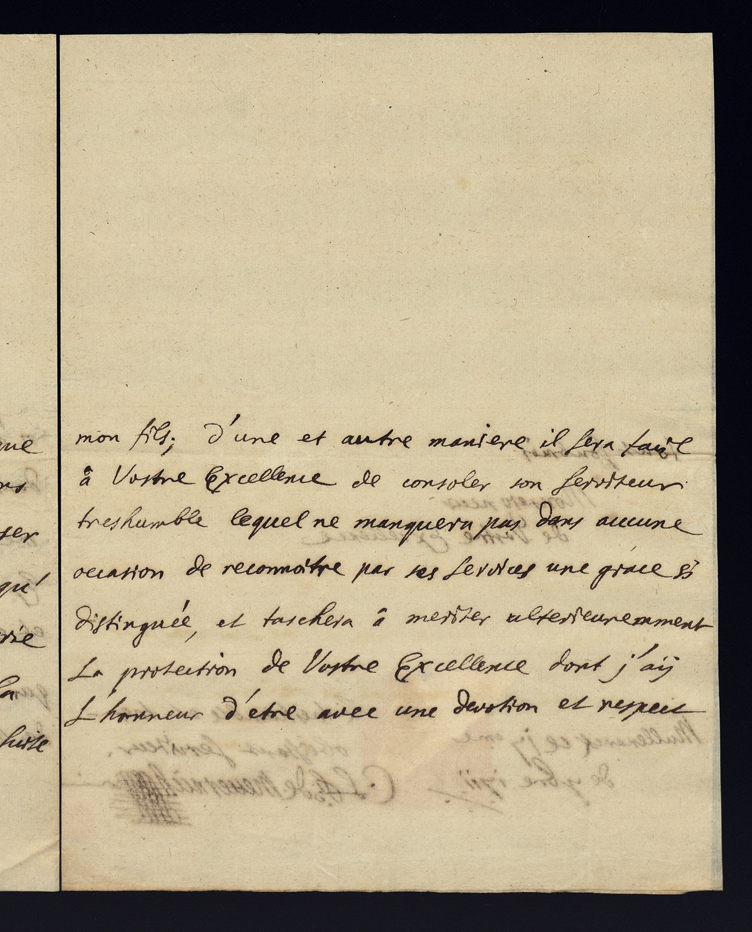 mon fils; d'une et autre maniere il sera facile
à Vostre Excellence de consoler son serviteur
treshumble lequel ne manquera pas dans aucune
occasion de reconnoitre par ses services une grace si
distinguée, et taschera à meriter ulterieuremment
La protection de Vostre Excellence dont j'aÿ
L'honneur d'etre avec une devotion et respect